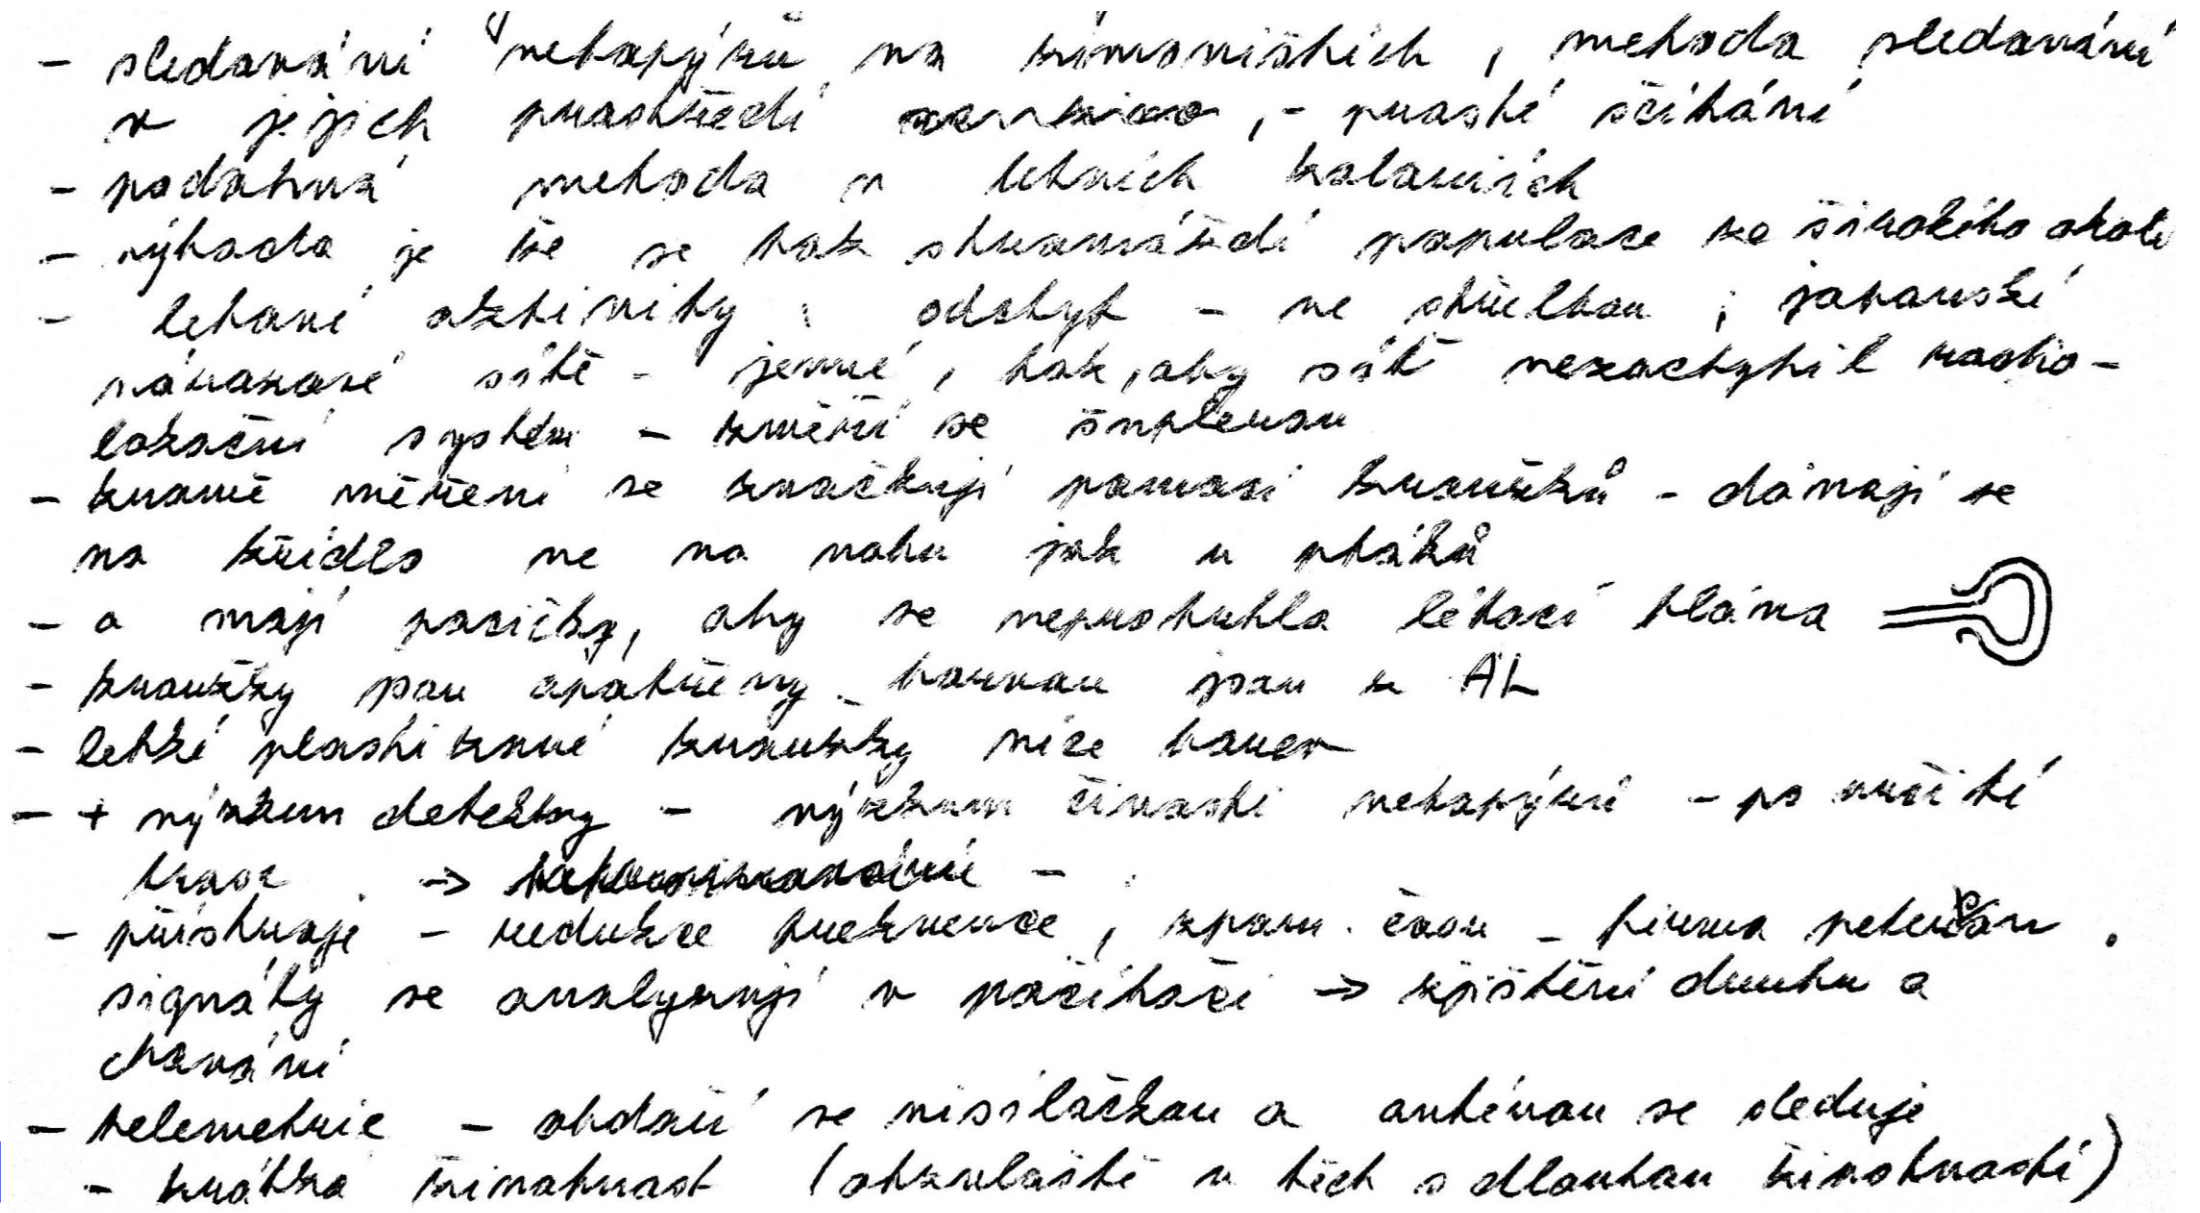 - sledování netopýrů na zimovištích, metoda sledování
v jejich prostředí, - prosté sčítání
- podobná metoda v letních koloniích
- výhoda je že se tak shromáždí populace ze širokého okolí
- letové aktivity : odchyt - ne střelbou ; japonské
nárazové sítě - jemné, tak, aby sítě nezachytil radio-
lokační systém - změří se šuplerou
- kromě měření se značkují pomocí kroužků - dávají se
na křídlo ne na nohu jak u ptáků
- a mají pacičky, aby se neprotrhla létací blána
- kroužky jsou opatřeny barvou jsou z Al
- lehké plastikové kroužky více barev
- + výzkum detektory - výzkum činnosti netopýrů - po určité
trase →
- přístroje - redukce frekvence, zpom. času - firma peterson.
signály se analyzují v počítači → zjištění druhu a
chování
- telemetrie - obdaří se vysílačkou a anténou se sleduje
- krátká životnost (obzvláště u těch s dlouhou životností)